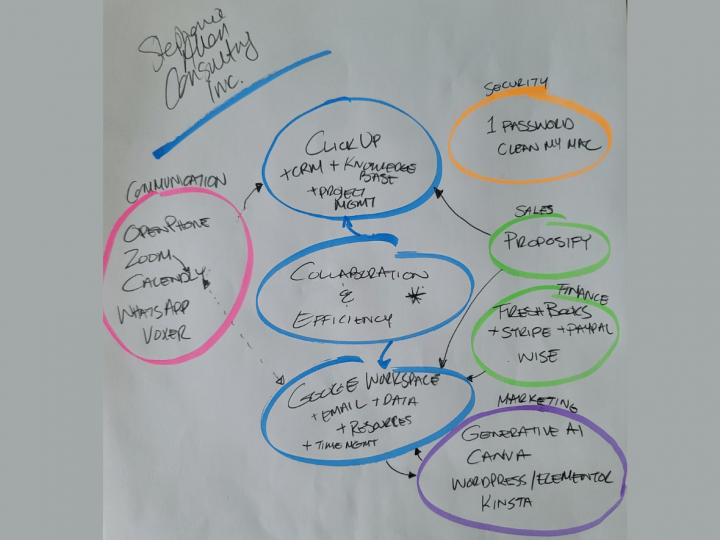 Stephanie
Allen
Consulting
Inc.
SECURITY
1 PASSWORD
CLEAN MY MAC
CLICKUP
+CRM + KNOWLEDGE
BASE
+PROJECT
MGMT
COMMUNICATION
OPENPHONE
ZOOM
CALENDLY
WHATSAPP
VOXER
SALES
PROPOSIFY
COLLABORATION
&
EFFICIENCY
*
FINANCE
FRESHBOOKS
+ STRIPE + PAYPAL
WISE
GOOGLE WORKSPACE
+ EMAIL + DATA
+ RESOURCES
+ TIME MGMT
MARKETING
GENERATIVE AI
CANVA
WORDPRESS/ELEMENTOR
KINSTA